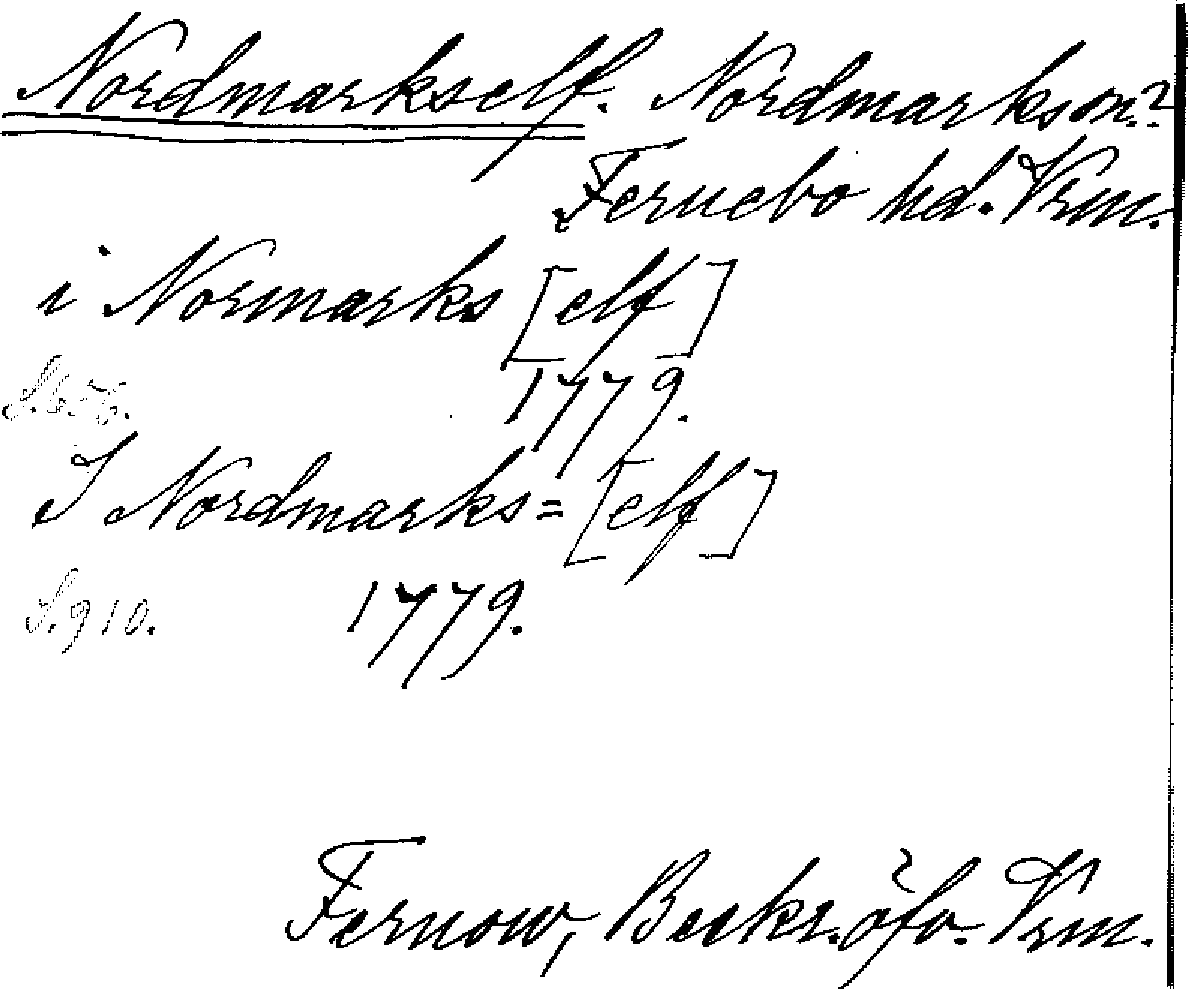 Nordmarkself. Nordmarks sn.?
Fernebo hd. Vrm.
i Normarks [elf]
S. 656. 1779.
I Nordmarks= [elf]
S. 910. 1779.
Fernow, Beskr. öfv. Vrm.